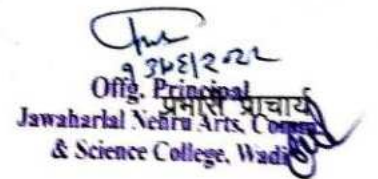 Offg. Principal
प्रभारी प्राचार्य
Jawaharlal Nehru Arts, Comm
& Science College, Wadi